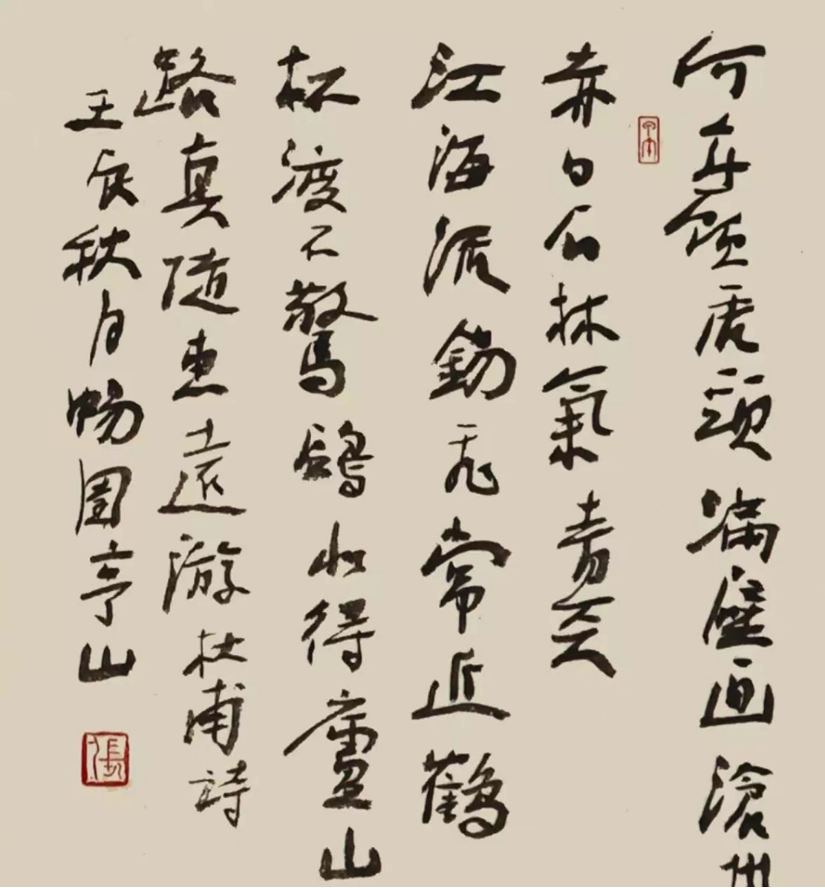 何年顧虎頭滿壁画滄州
赤日石林氣青天
江海流錫飛常近鶴
杯渡不驚鷗似得廬山
路真隨惠遠游杜甫詩
壬辰秋月畅園亭山
張